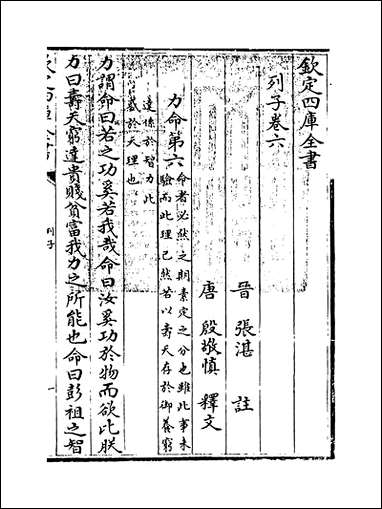 欽定四庫全書
列子卷六
晉 張湛 註
唐 殷敬慎 釋文
力命第六
命者必然之期素定之分也雖此事未
驗而此理已然若以壽夭存於御養窮
達係於智力此
惑於天理也
力謂命曰若之功奚若我哉命曰汝奚功於物而欲比朕
力曰壽夭窮達貴賤貧富我力之所能也命曰彭祖之智
列子
一